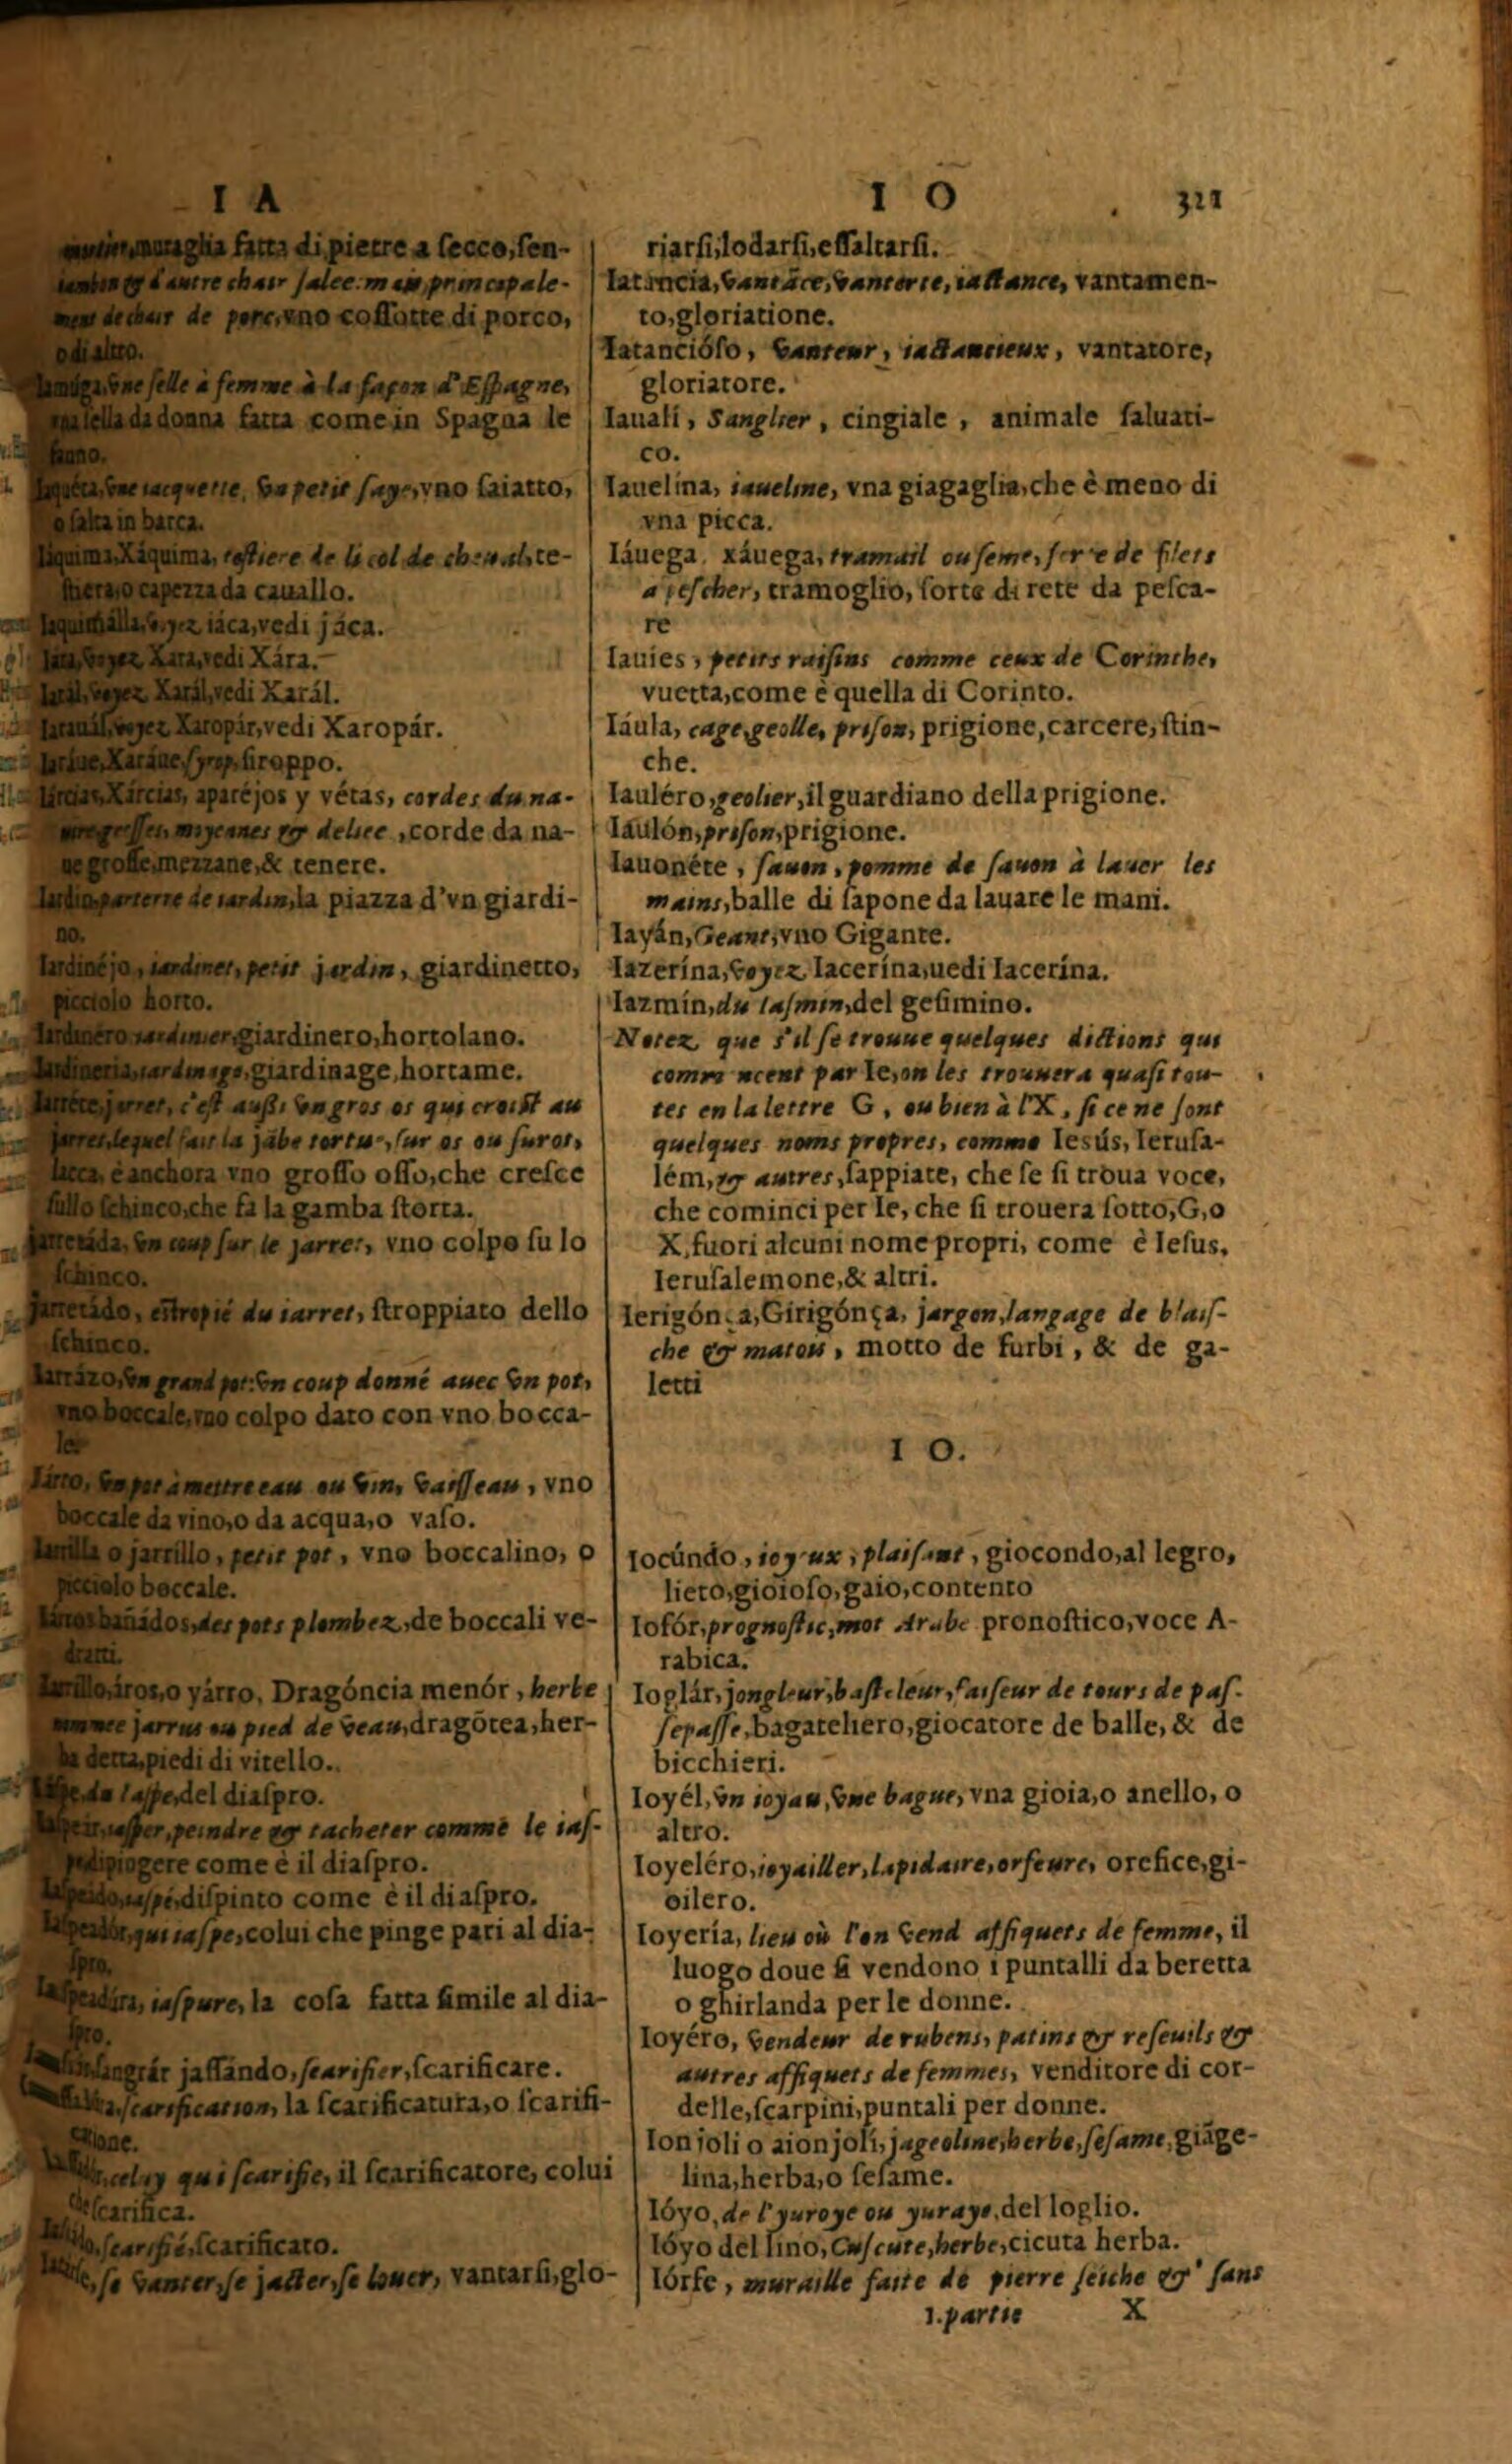 I A
fatta di pietre a ſecco, ſen-
d'autre chair ſalee: mais principale-
de chair de porc, vno coſſotte di porco,
o di altro.
Iamúga, vne ſelle à femme à la façon d'Eſpagne,
ſella da donna fatta come in Spagna le
fanno.
Iaquéta, vne iacquette, vn petit ſaye, vno ſaiatto,
o ſalta in barca.
Iáquima, Xáquima, teſtiere de licol de cheual, te-
ſtiera, o capezza da cauallo.
voyez iáca, vedi jáca.
Iára, voyez Xara, vedi Xára.
Iarál, voyez Xarál, vedi Xarál.
voyez Xaropár, vedi Xaropár.
Xaráue, ſyrop, ſiroppo.
Iárcias, Xárcias, aparéjos y vétas, cordes du na-
uire groſſes, moyennes & deliee, corde da na-
ue groſſe, mezzane, & tenere.
Iardin, parterre de iardin, la piazza d'vn giardi-
no.
Iardinéjo, iardinet, petit jardin, giardinetto,
picciolo horto.
Iardinéro iardinier, giardinero, hortolano.
Iardineria, iardinage, giardinage, hortame.
Iarréte, jarret, c'eſt auſſi vn gros os qui croiſt au
jarret, lequel fait la jābe tortue, ſur os ou ſurot,
lacca, è anchora vno groſſo oſſo, che creſce
ſullo ſchinco, che fa la gamba ſtorta.
jarretáda, vn coup ſur le jarret, vno colpo ſu lo
ſchinco.
jarretádo, eſtropié du iarret, ſtroppiato dello
ſchinco.
Iarrázo, vn grand pot: vn coup donné auec vn pot,
vno boccale, vno colpo dato con vno bocca-
le
Iárro, vn pot à mettre eau ou vin, vaiſſeau, vno
boccale da vino, o da acqua, o vaſo.
Iarrilla o jarríllo, petit pot, vno boccalino, o
picciolo boccale.
Iárros bañádos, des pots plombez, de boccali ve-
driatti.
Iarrillo, áros, o yárro, Dragóncia menór, herbe
nommee jarrus ou pied de veau, dragōtea, her-
ba detta, piedi di vitello.
Iáspe, du Iaſpe, del diaſpro.
iaſper, peindre & tacheter comme le iaſ-
pe, dipingere come è il diaſpro.
iaſpé, diſpinto come è il diaſpro.
qui iaſpe, colui che pinge pari al dia-
ſpro.
iaſpure, la coſa fatta ſimile al dia-
ſpro.
jaſſándo, ſcarifier, ſcarificare.
ſcarification, la ſcarificatura, o ſcarifi-
catione.
celuy qui ſcarifie, il ſcarificatore, colui
che ſcarifica.
ſcarifié, ſcarificato.
ſe vanter, ſe jacter, ſe louer, vantarſi, glo-
I O
321
riarſi, lodarſi, eſſaltarſi.
Iatáncia, vantāce, vanterie, iactance, vantamen-
to, gloriatione.
Iatancióſo, vanteur, iactancieux, vantatore,
gloriatore.
Iaualí, Sanglier, cingiale, animale ſaluati-
co.
Iauelína, iaueline, vna giagaglia, che è meno di
vna picca.
Iáuega, xáuega, tramail ou ſeine, ſorte de filets
a peſcher, tramoglio, ſorte di rete da peſca-
re
Iauies, petits raiſins comme ceux de Corinthe,
vuetta, come è quella di Corinto.
Iáula, cage, geolle, priſon, prigione, carcere, ſtin-
che.
Iauléro, geolier, il guardiano della prigione.
Iaulón, priſon, prigione.
Iauonéte, ſauon, pomme de ſauon à lauer les
mains, balle di ſapone da lauare le mani.
Iayán, Geant, vno Gigante.
Iazerína, voyez Iacerína, uedi Iacerína.
Iazmín, du Iaſmin, del geſimino.
Notez que s'il ſe trouue quelques dictions qui
commencent par Ie, on les trouuera quaſi tou-
tes en la lettre G, ou bien à l'X, ſi ce ne ſont
quelques noms propres, comme Ieſús, Ieruſa-
lém, & autres, ſappiate, che ſe ſi troua voce,
che cominci per Ie, che ſi trouera ſotto, G, o
X, fuori alcuni nome propri, come è Ieſus,
Ieruſalemone, & altri.
Ierigónça, Girigónça, jargon, langage de blaiſ-
che & matois, motto de furbi, & de ga-
letti
I O.
Iocúndo, ioyeux, plaiſant, giocondo, al legro,
lieto, gioioſo, gaio, contento
Iofór, prognoſtic, mot Arabe pronoſtico, voce A-
rabica.
Ioglár, jongleur, baſteleur, faiſeur de tours de paſ-
ſepaſſe, bagateliero, giocatore de balle, & de
bicchieri.
Ioyél, vn ioyau, vne bague, vna gioia, o anello, o
altro.
Ioyeléro, ioyailler, lapidaire, orfeure, orefice, gi-
oilero.
Ioyería, lieu où l'on vend affiquets de femme, il
luogo doue ſi vendono i puntalli da beretta
o ghirlanda per le donne.
Ioyéro, vendeur de rubens, patins & reſeuils &
autres affiquets de femmes, venditore di cor-
delle, ſcarpini, puntali per donne.
Ionjoli o aionjolí, jageoline, herbe, ſeſame, giāge-
lina, herba, o ſeſame.
Ióyo, de l'yuroye ou yuraye, del loglio.
Ióyo del lino, Cuſcute, herbe, cicuta herba.
Iórfe, muraille faite de pierre ſeiche & ſans
1. partie X